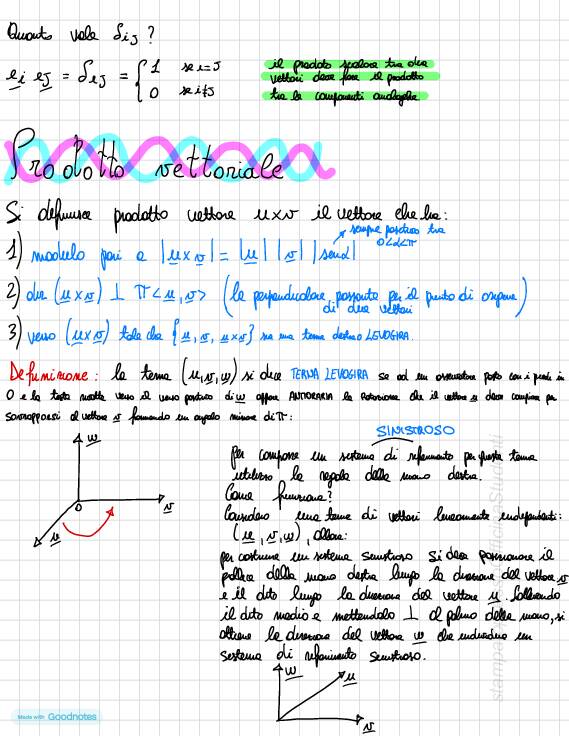 Quanto vale δij ?
ei ej = δij = { 1 se i=j
0 se i≠j
il prodotto scalare tra due
vettori deve fare il prodotto
tra le componenti analoghe
Prodotto vettoriale
Si definisce prodotto vettore u×v il vettore che ha:
sempre positivo tra
0<α<π
1) modulo pari a |u×v| = |u| |v| |senα|
2) dir (u×v) ⊥ π<u,v> (la perpendicolare passante per il punto di origine)
di due vettori
3) verso (u×v) tale che {u, v, u×v} sia una terna destra o LEVOGIRA.
Definizione: la terna (u,v,w) si dice TERNA LEVOGIRA se ad un osservatore posto con i piedi in
O e la testa rivolta verso il verso positivo di w appare ANTIORARIA la rotazione che il vettore u deve compiere per
sovrapporsi al vettore v formando un angolo minore di π:
SINISTROSO
Per comporre un sistema di riferimento per questa terna
utilizzo la regola della mano destra.
Come funziona?
Considero una terna di vettori linearmente indipendenti:
(u, v, w), allora:
per costruire un sistema sinistroso si deve posizionare il
pollice della mano destra lungo la direzione del vettore v
e il dito lungo la direzione del vettore u. Sollevando
il dito medio e mettendolo ⊥ al palmo della mano, si
ottiene la direzione del vettore w che individua un
sistema di riferimento sinistroso.
w
O
v
u
w
u
v
Made with Goodnotes